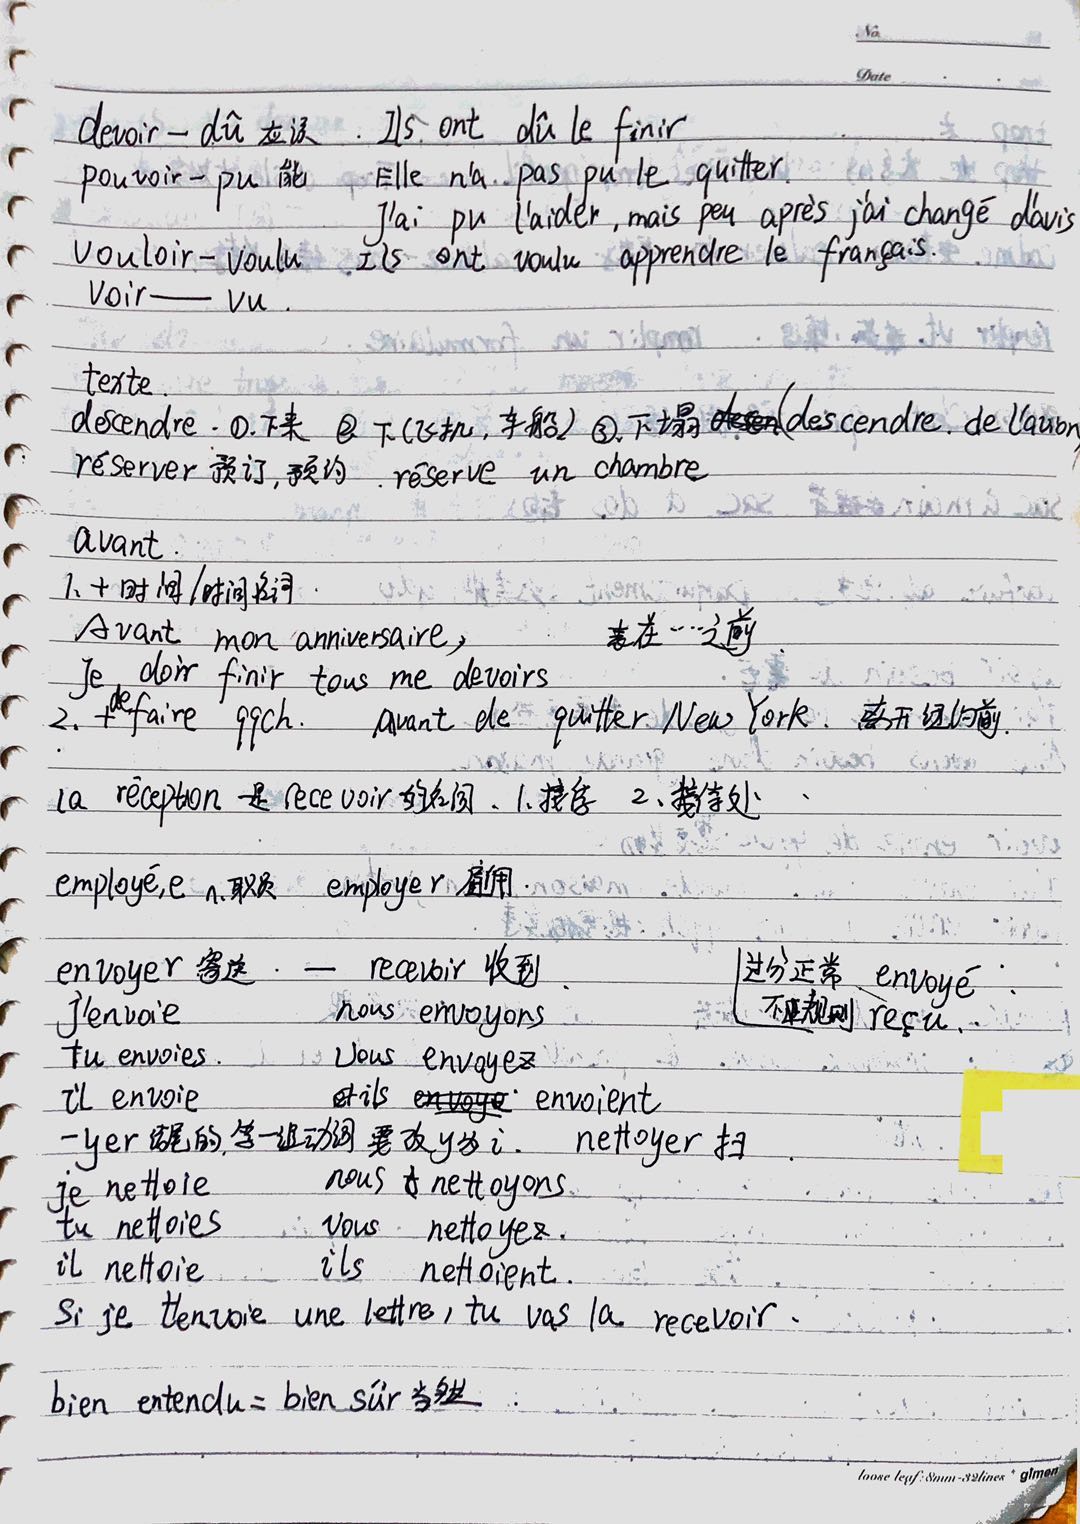 No.
Date
devoir — dû 应该 . Ils ont dû le finir
pouvoir — pu 能 Elle n'a pas pu le quitter.
J'ai pu l'aider, mais peu après j'ai changé d'avis
vouloir — voulu . Ils ont voulu apprendre le français.
voir — vu .
texte.
descendre . ①.下来 ② 下(飞机, 车船) ③.下塌 (descendre de l'avion)
réserver 预订, 预约 . réserve un chambre
avant .
1. + 时间/时间名词 .
Avant mon anniversaire, 表在……之前
Je doir finir tous me devoirs
2. + de faire qqch. avant de quitter New York . 离开纽约前.
la réception 是 recevoir 的名词 . 1.接待 2.接待处 .
employé,e n.职员 employer 雇用 .
envoyer 寄送 . — recevoir 收到 . 过分正常 envoyé
j'envoie nous envoyons 不规则 reçu .
tu envoies . vous envoyez
il envoie ils envoient
-yer 结尾的,第一组动词 要改y为i . nettoyer 扫 .
je nettoie nous nettoyons
tu nettoies vous nettoyez .
il nettoie ils nettoient .
Si je t'envoie une lettre, tu vas la recevoir .
bien entendu = bien sûr 当然 .
loose leaf:8mm-32lines * gimon